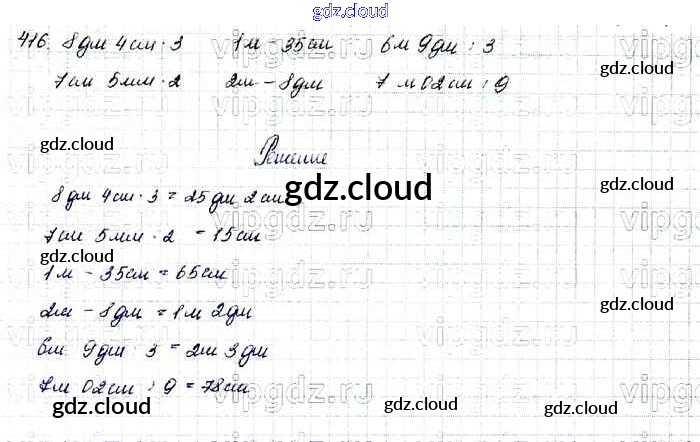 gdz.cloud
416. 8дм 4см · 3 1м - 35см 6м 9дм : 3
gdz.cloud
7см 5мм · 2 2м - 8дм 7м 02см : 9
gdz.cloud
gdz.cloud
Решение
gdz.cloud
8дм 4см · 3 = 25дм 2см
gdz.cloud
7см 5мм · 2 = 15см
1м - 35см = 65см
gdz.cloud
2м - 8дм = 1м 2дм
6м 9дм : 3 = 2м 3дм
7м 02см : 9 = 78см
gdz.cloud
gdz.cloud
gdz.cloud
vipgdz.ru